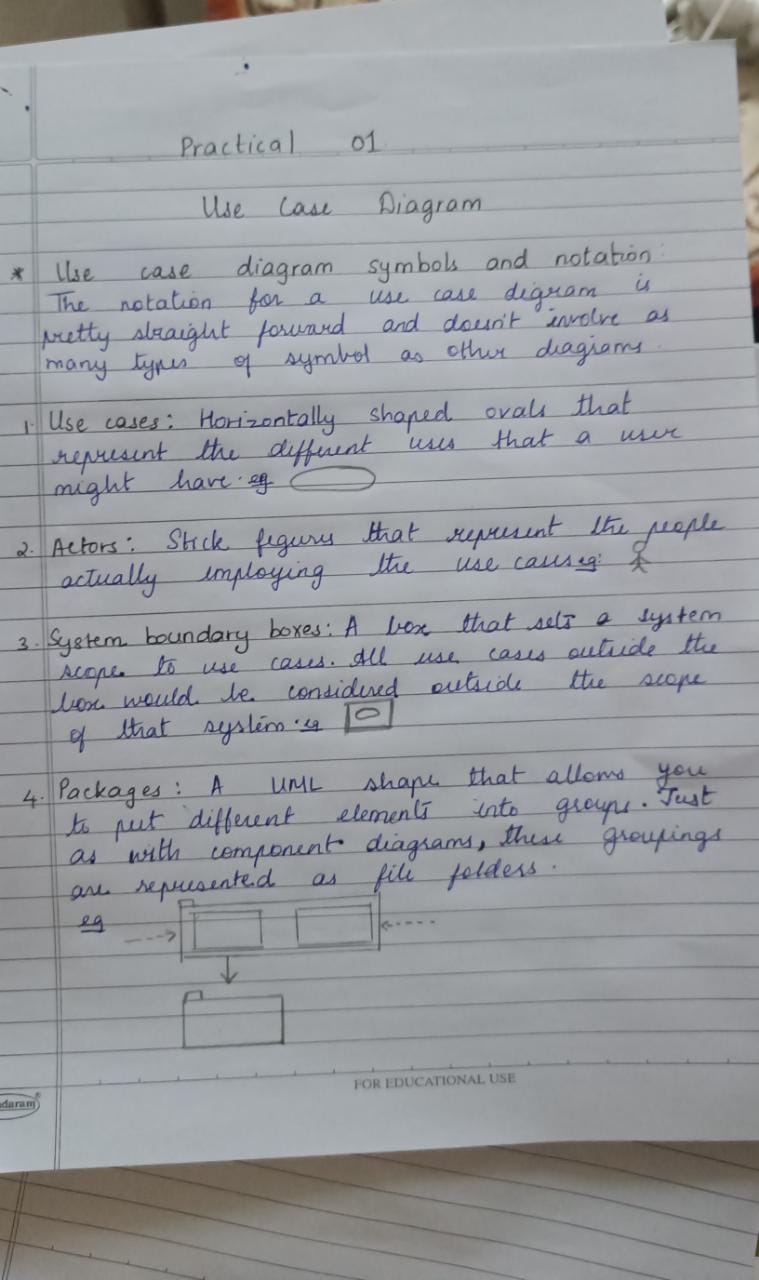 Practical 01
Use Case Diagram
* Use case diagram symbols and notation:
The notation for a use case digram is
pretty straight forward and doesn't involve as
many types of symbol as other diagrams.
1. Use cases: Horizontally shaped ovals that
represent the different uses that a user
might have. eg
2. Actors: Stick figures that represent the people
actually employing the use cases eg:
3. System boundary boxes: A box that sets a system
scope to use cases. All use cases outside the
box would be considered outside the scope
of that system. eg
4. Packages: A UML shape that allows you
to put different elements into groups. Just
as with component diagrams, these groupings
are represented as file folders.
eg
FOR EDUCATIONAL USE
daram